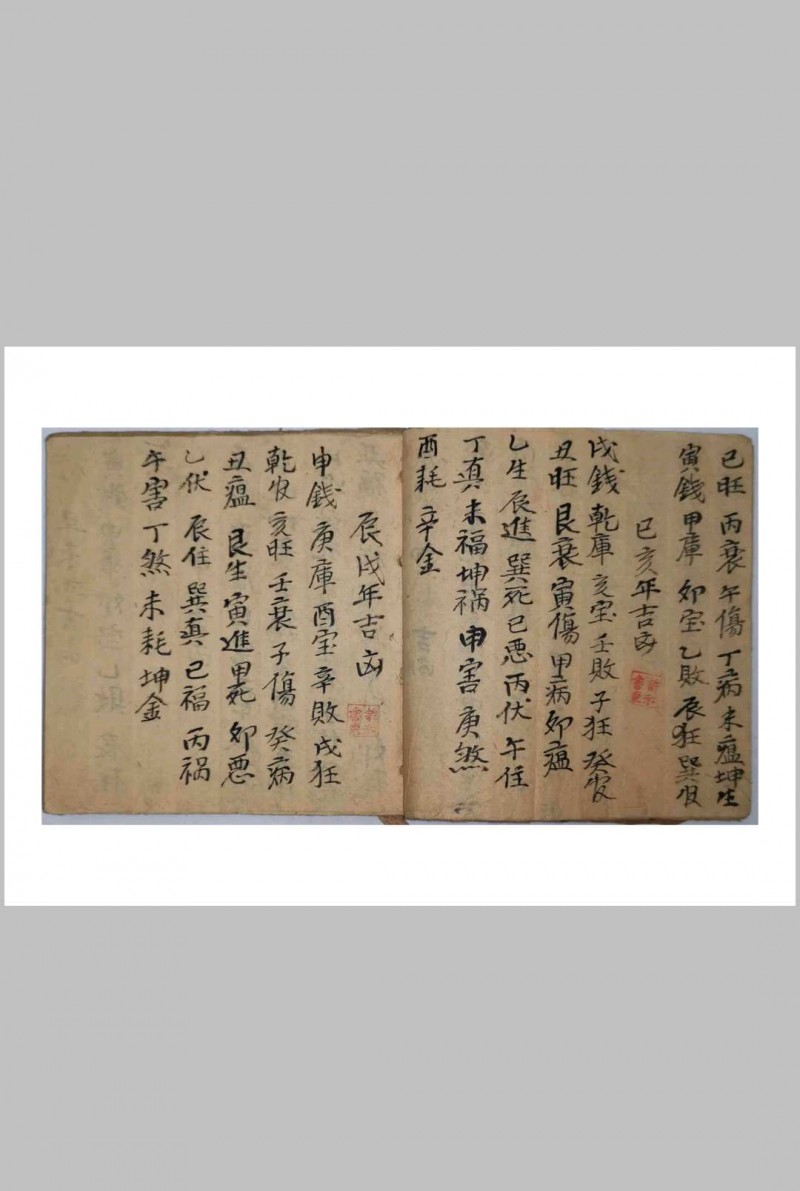 巳旺 丙衰 午傷 丁病 未瘟 坤生
寅錢 甲庫 卯宝 乙敗 辰狂 巽官
巳亥年吉凶
戌錢 乾庫 亥宝 壬敗 子狂 癸官
丑旺 艮衰 寅傷 甲病 卯瘟
乙生 辰進 巽死 巳恶 丙伏 午住
丁真 未福 坤禍 申害 庚煞
酉耗 辛金
辰戌年吉凶
申錢 庚庫 酉宝 辛敗 戌狂
乾官 亥旺 壬衰 子傷 癸病
丑瘟 艮生 寅進 甲死 卯恶
乙伏 辰住 巽真 巳福 丙祸
午害 丁煞 未耗 坤金